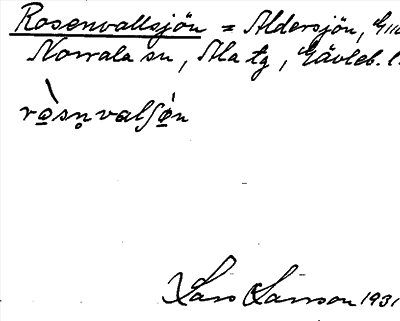 Rosenvallsjön = Aldersjön,
Norrala sn, Ala tg, Gävleb. l.
rò̲sn̥valʃó̲n
Lars Larsson 1931